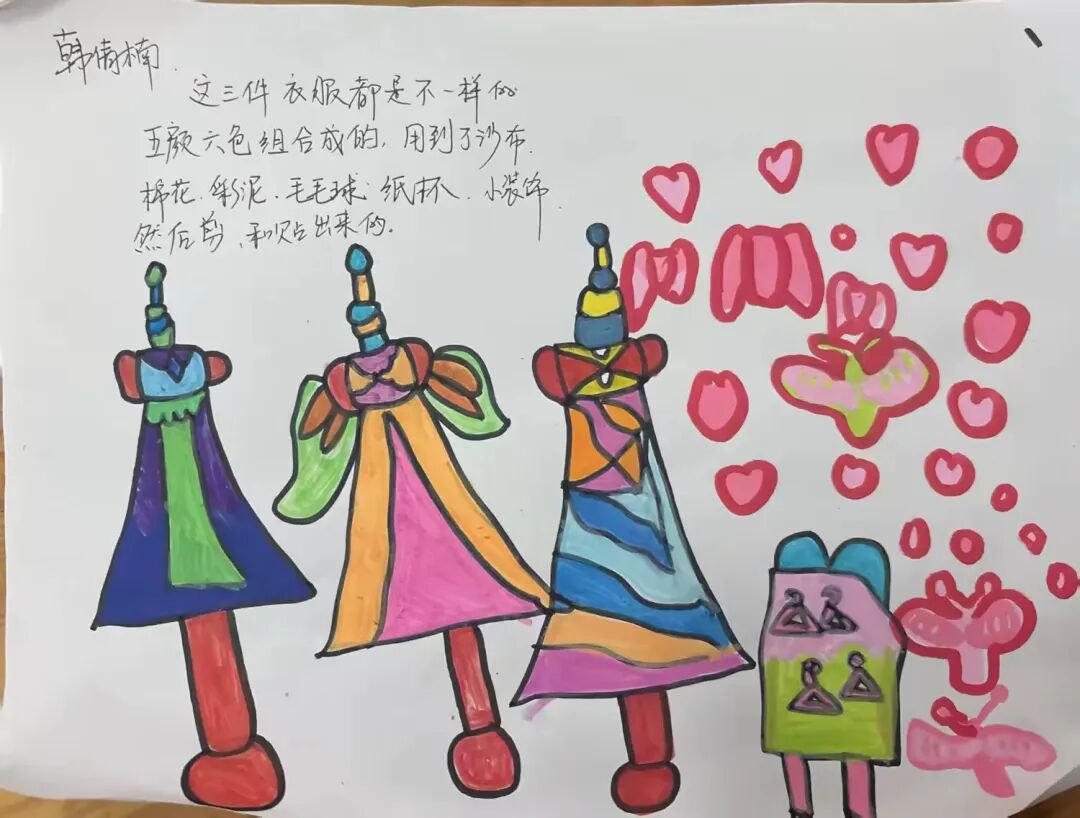 韩倩楠.
这三件衣服都是不一样的
五颜六色组合成的,用到了沙布.
棉花.彩泥.毛毛球.纸杯.小装饰.
然后剪、和贴出来的.